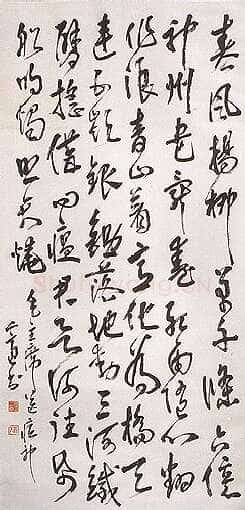 春風楊柳万千條六億
神州盡舜堯紅雨随心翻
作浪青山着意化為橋天
連五嶺銀鋤落地動三河鐵
臂摇借问瘟君欲何往紙
船明燭照天燒 毛主席送瘟神